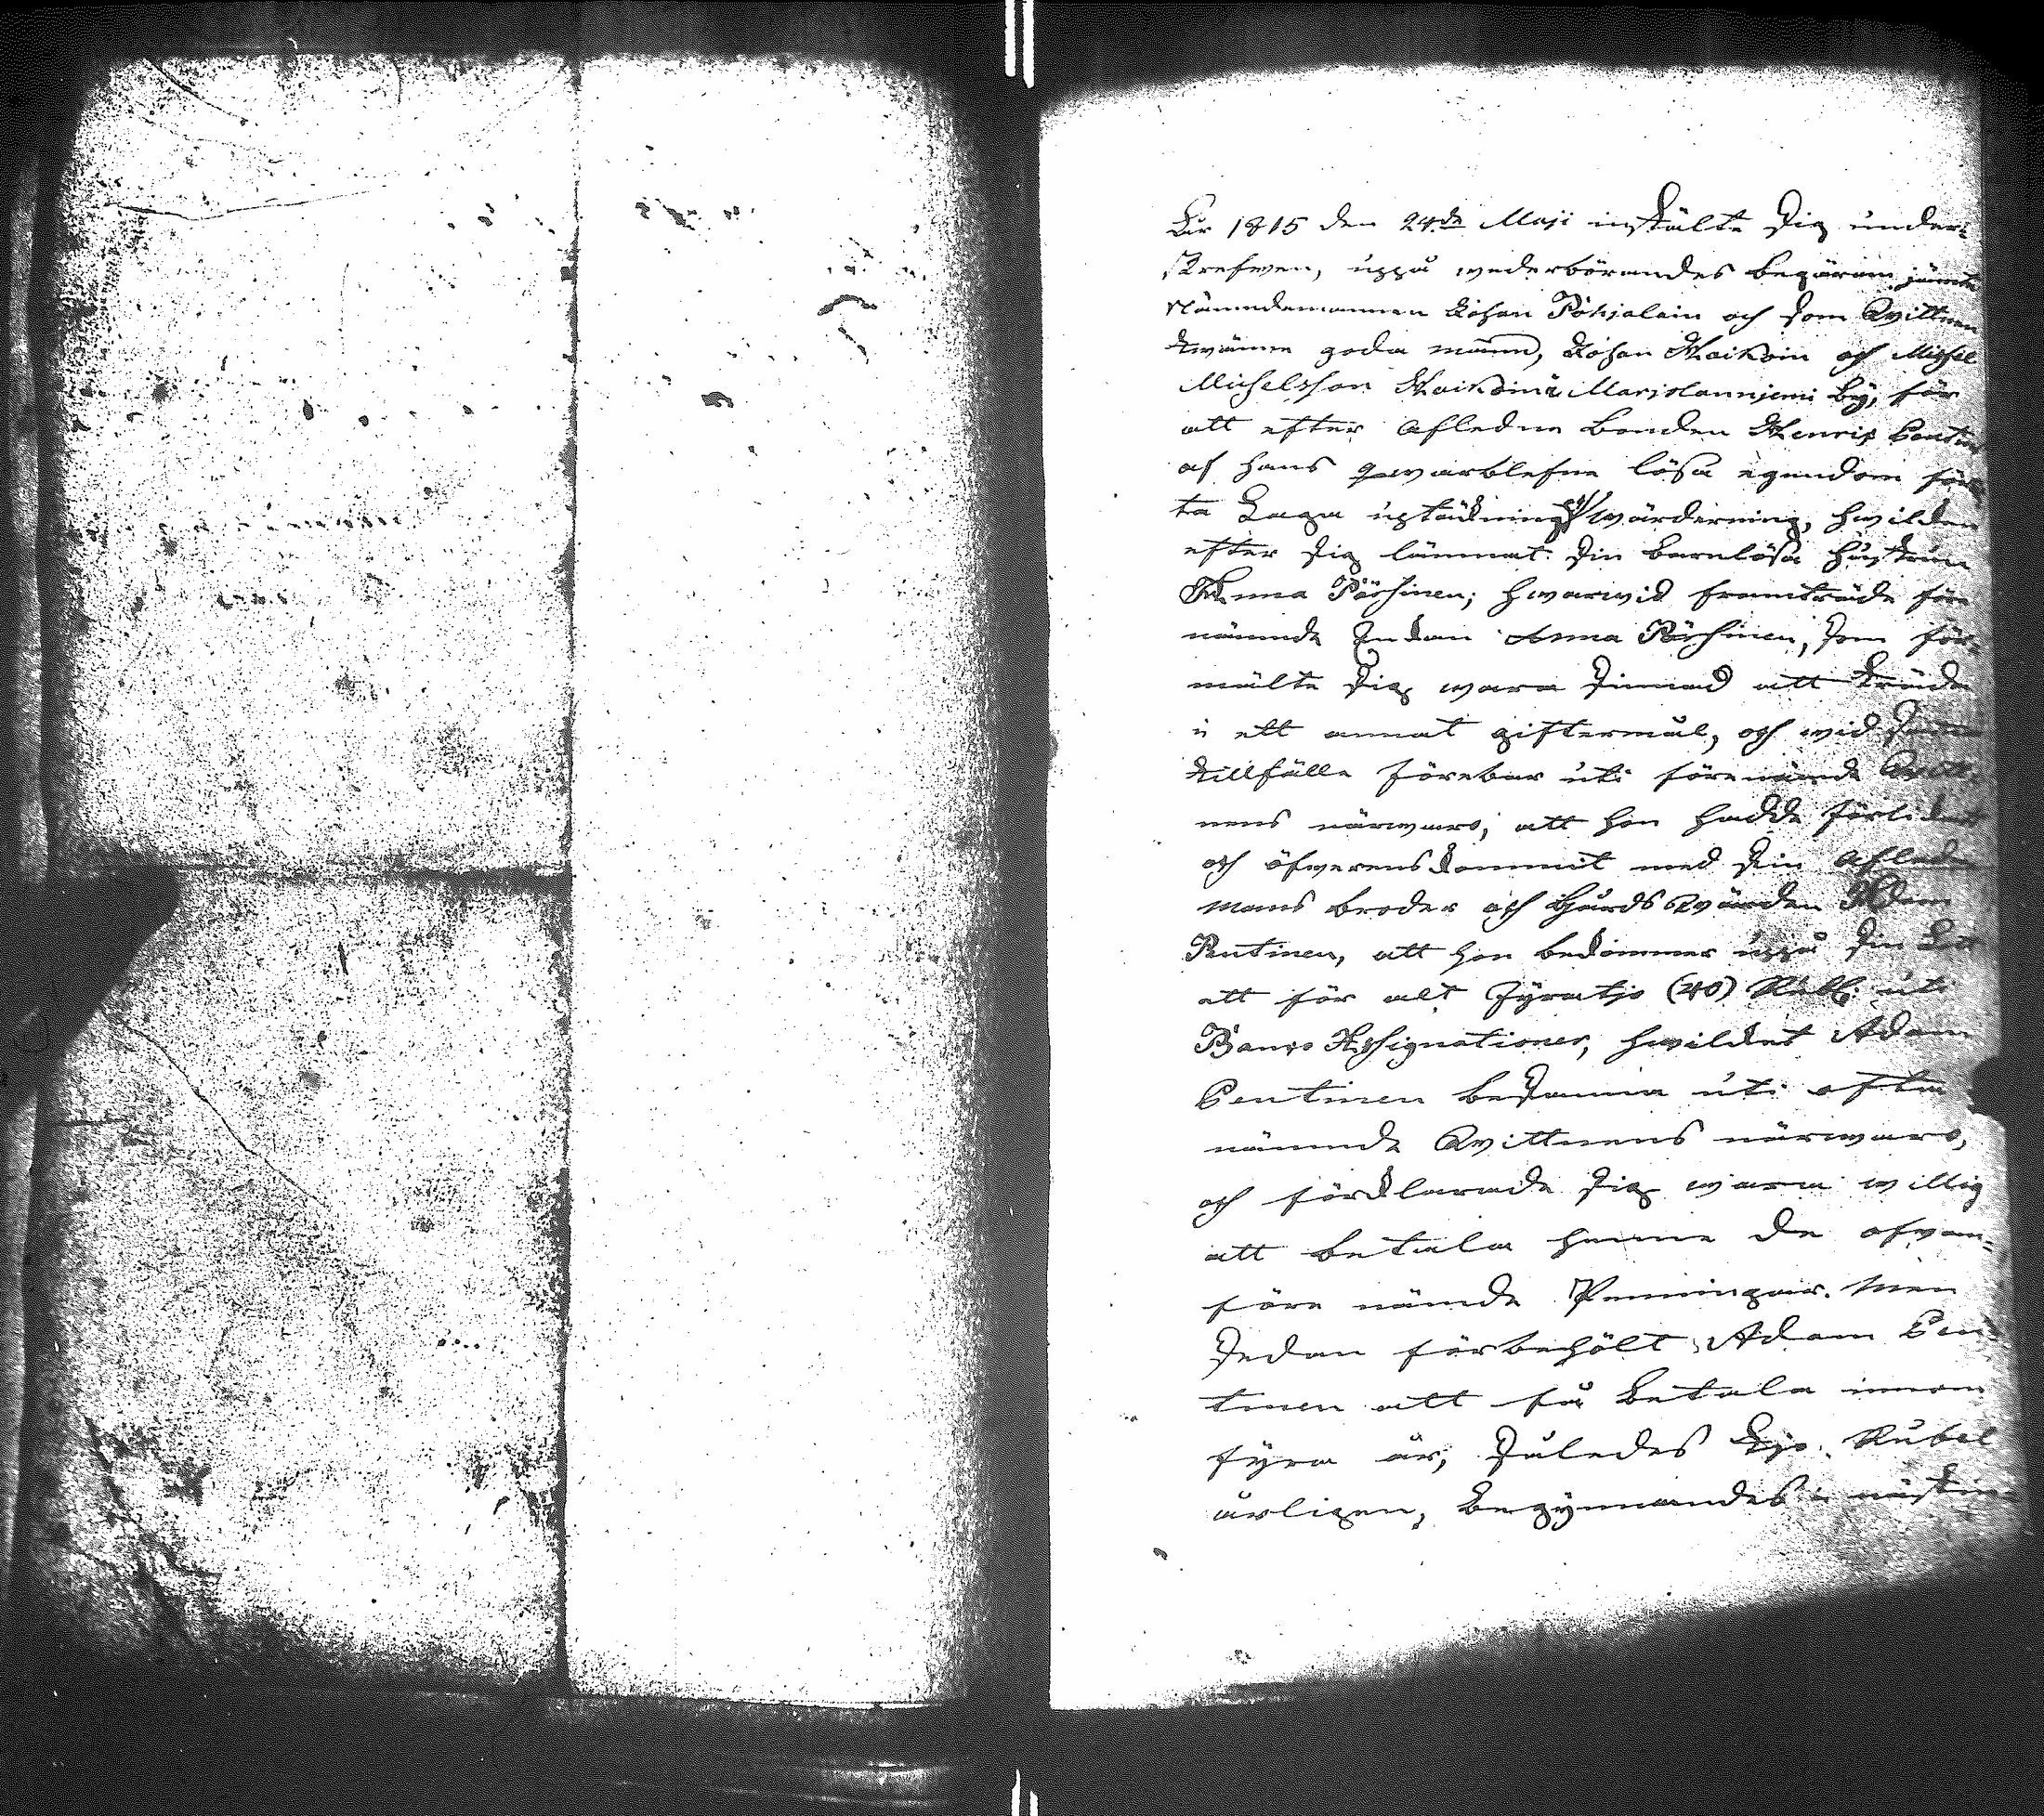 År 1815 den 24de Maji instälte sig under-
skrefven, uppå wederbörandes begäran jämte
Nämndemannen Johan Pohjalain och som Wittnen
twänne goda männ, Johan Kaikoin och Michel
Michelsson Kaikoin Marjolanniemi by, för
att efter Afledne bonden Henric Pentin
af hans qwarblefne lösa egendom förä
ta Laga uptäckning wärdering, hwilken
efter sig lämnat sin barnlösa hustrun
Anna Pöyhinen; hwarwid framträde före
nämnde Enkan Anna Pöyhinen, som för-
mälte sig wara sinnad att träda
i ett annat giftermål, och wid samma
tillfälle förebar uti förenämde Witt-
nens närwaro, att hon hadde förlikat
och öfwerenskommit med sin Afledne
mans broder och Gårds Wärden Adam
Pentinen, att hon bekommer uppå sin Lott
ett för alt Fyratjo (40) Rubl. uti
Banco Assignationer, hwilket Adam
Pentinen besanna uti oftan
nämnde Wittnens närwaro,
och förklarade sig wara willig
att betala henne de ofvan-
före nämde Penningar. Men
sedan förbehölt Adam Pen-
tinen att få betala innom
fyra år, således Tjo Rubel
årligen, Begynnandes i nästkom